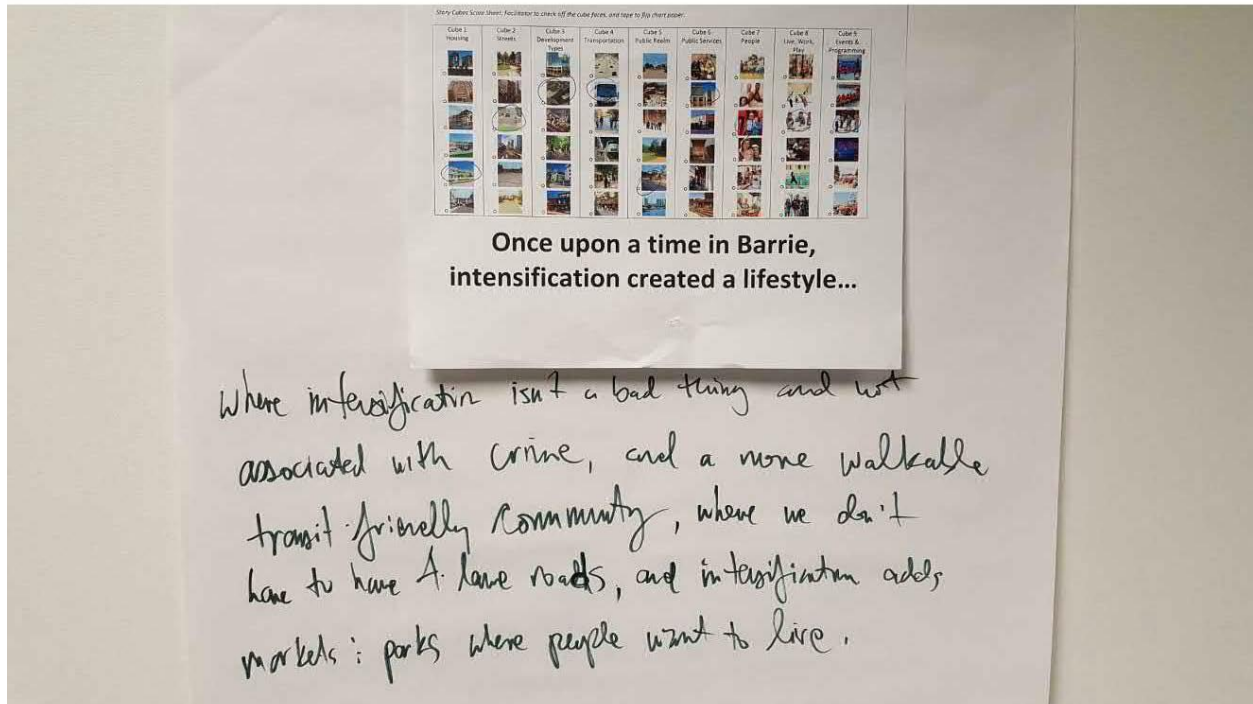 Story Cubes Score Sheet. Facilitator to check off the cube faces, and tape to flip chart paper.
Cube 1 Cube 2 Cube 3 Cube 4 Cube 5 Cube 6 Cube 7 Cube 8 Cube 9
Housing Streets Development Transportation Public Realm Public Services People Live, Work, Events &
Types Play Programming
Once upon a time in Barrie,
intensification created a lifestyle...
where intensification isn't a bad thing and not
associated with crime, and a more walkable
transit-friendly community, where we don't
have to have 4. lane roads, and intensification adds
markets; parks where people want to live.